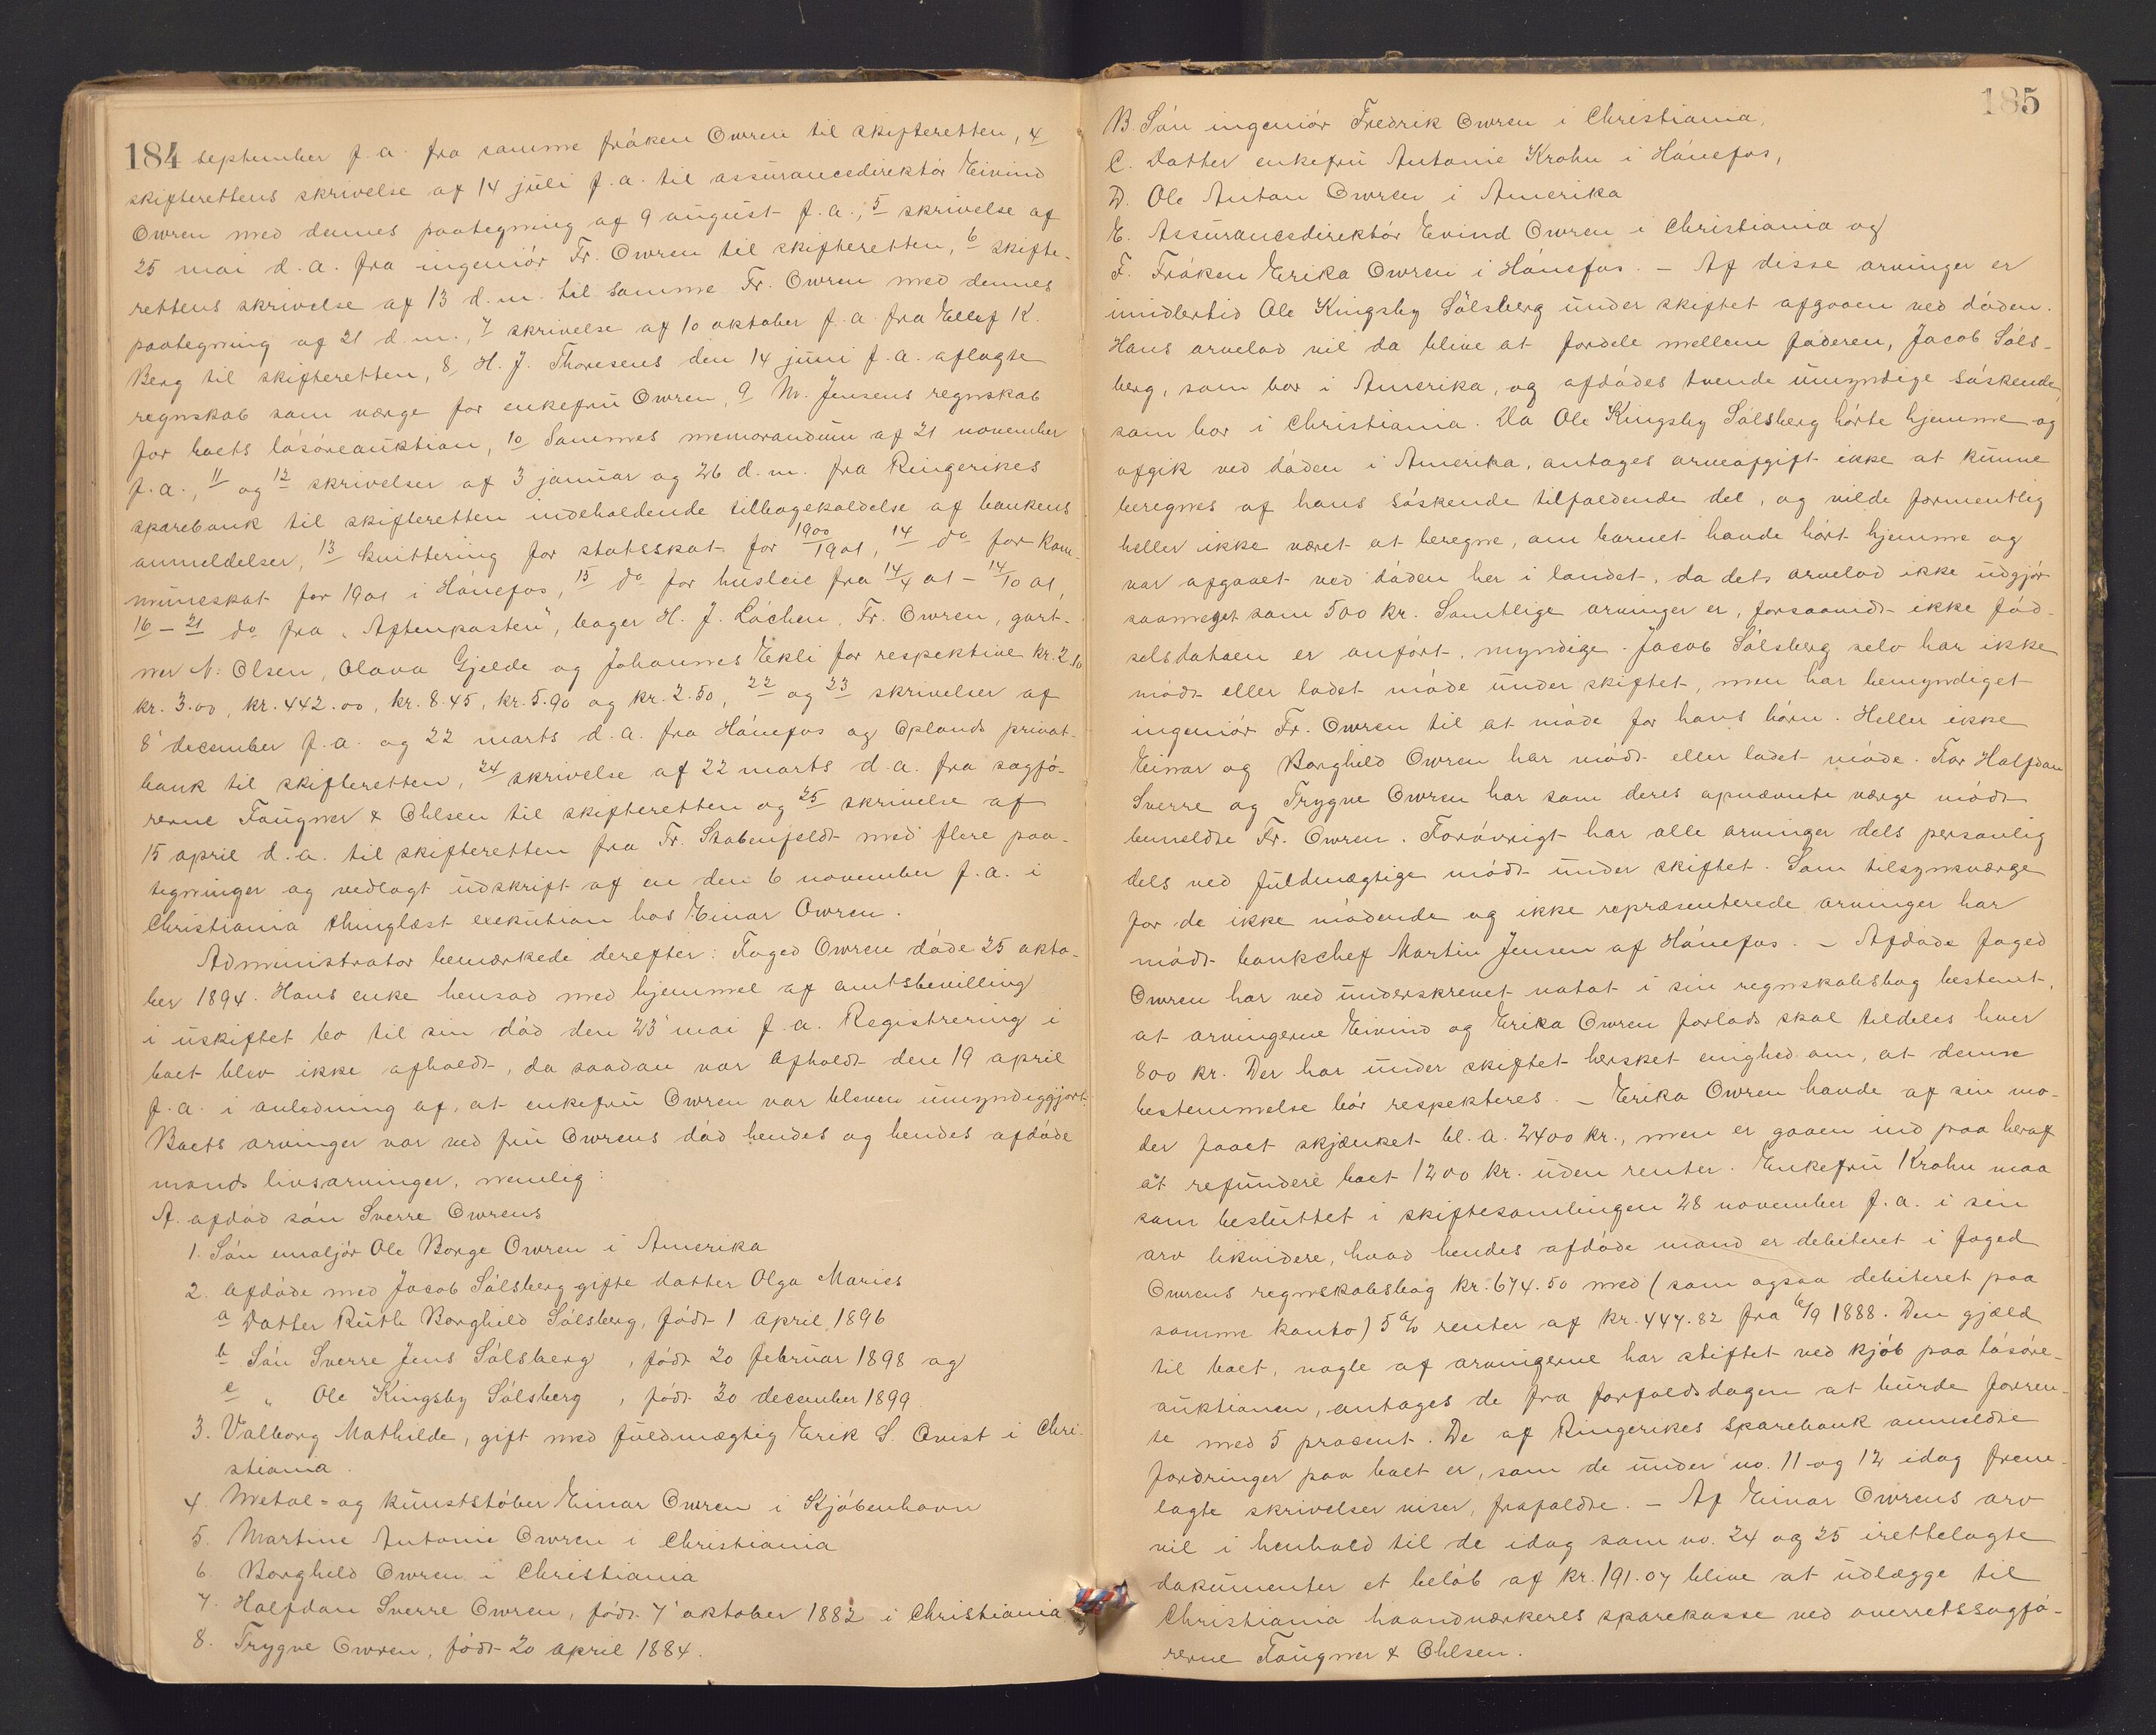 184 september f. a. fra samme fröken Owren til skifteretten, 4
skifterettens skrivelse af 14 juli f. a. til assurancedirektör Eivind
Owren med dennes paategning af 9 august f. a., 5 skrivelse af
25 mai d. a. fra ingeniör Fr. Owren til skifteretten, 6 skifte-
rettens skrivelse af 13 d. m. til samme Fr. Owren med dennes
paategning af 21 d. m., 7 skrivelse af 10 oktober f. a. fra Ellef K.
Berg til skifteretten, 8, H. J. Thoresens den 14 juni f. a. aflagte
regnskab som værge for enkefru Owren, 9 M. Jensens regnskab
for boets lösöreauktion, 10 Sammes memorandum af 21 november
f. a., 11 og 12 skrivelser af 3 januar og 26 d. m. fra Ringerikes
sparebank til skifteretten indeholdende tilbagekaldelse af bankens
anmeldelser, 13 kvittering for statsskat for 1900/1901, 14 do for kom-
muneskat for 1901 i Hönefos, 15 do for husleie fra 14/4 01 - 14/10 01,
16 - 21 do fra "Aftenposten", bager H. J. Löchen, Fr. Owren, gart-
ner N. Olsen, Olava Gjelde og Johannes Ekli for respektive kr. 2.10
kr. 3.00, kr. 442.00, kr. 8.45, kr. 5.90 og kr. 2.50, 22 og 23 skrivelser af
8 december f. a. og 22 marts d. a. fra Hönefos og Oplands privat-
bank til skifteretten, 24 skrivelse af 22 marts d. a. fra sagfö-
rerne Fougner & Ohlsen til skifteretten og 25 skrivelse af
15 april d. a. til skifteretten fra Fr. Stabenfeldt med flere paa-
tegninger og vedlagt udskrift af en den 6 november f. a. i
Christiania thinglæst exekution hos Einar Owren.
Administrator bemærkede derefter: Foged Owren döde 25 okto-
ber 1894. Hans enke hensad med hjemmel af amtsbevilling
i uskiftet bo til sin död den 23 mai f. a. Registrering i
boet blev ikke afholdt, da saadan var afholdt den 19 april
f. a. i anledning af, at enkefru Owren var bleven umyndiggjort.
Boets arvinger var ved fru Owrens död hendes og hendes afdöde
mands livsarvinger, nemlig:
A. afdöd sön Sverre Owrens
1. Sön emaljör Ole Borge Owren i Amerika
2. afdöde med Jacob Sölsberg gifte datter Olga Maries
a Datter Ruth Borghild Sölsberg, födt 1 april 1896
b Sön Sverre Jens Sölsberg, födt 20 februar 1898 og
c " Ole Kingsby Sölsberg, födt 30 december 1899
3. Valborg Mathilde, gift med fuldmægtig Erik S. Qvist i Chri-
stiania.
4. Metal- og kunststöber Einar Owren i Kjöbenhavn
5. Martine Antonie Owren i Christiania
6. Borghild Owren i Christiania
7. Halfdan Sverre Owren, födt 7 oktober 1882 i Christiania
8. Trygve Owren, födt 20 april 1884.
185
B. Sön ingeniör Fredrik Owren i Christiania,
C. Datter enkefru Antonie Krohn i Hönefos,
D. Ole Anton Owren i Amerika
E. Assurancedirektör Evind Owren i Christiania og
F. Fröken Erika Owren i Hönefos. - Af disse arvinger er
imidlertid Ole Kingsby Sölsberg under skiftet afgaaen ved döden.
Hans arvelod vil da blive at fordele mellem faderen, Jacob Söls-
berg, som bor i Amerika, og afdödes tvende umyndige söskende,
som bor i Christiania. Da Ole Kingsby Sölsberg hörte hjemme og
afgik ved döden i Amerika, antages arveafgift ikke at kunne
beregnes af hans söskende tilfaldende del, og vilde formentlig
heller ikke været at beregne, om barnet havde hört hjemme og
var afgaaet ved döden her i landet, da dets arvelod ikke udgjör
saameget som 500 kr. Samtlige arvinger er, forsaavidt ikke föd-
selsdataen er anfört, myndige. Jacob Sölsberg selv har ikke
mödt eller ladet möde under skiftet, men har bemyndiget
ingeniör Fr. Owren til at möde for hans börn. Heller ikke
Einar og Borghild Owren har mödt eller ladet möde. For Halfdan
Sverre og Trygve Owren har som deres opnævnte værge mödt
bemeldte Fr. Owren. Forövrigt har alle arvinger dels personlig
dels ved fuldmægtige mödt under skiftet. Som tilsynsværge
for de ikke mödende og ikke repræsenterede arvinger har
mödt bankchef Martin Jensen af Hönefos. - Afdöde foged
Owren har ved underskrevet notat i sin regnskabsbog bestemt,
at arvingerne Eivind og Erika Owren forlods skal tildeles hver
800 kr. Der har under skiftet hersket enighed om, at denne
bestemmelse bör respekteres. - Erika Owren havde af sin mo-
der faaet skjænket bl. a. 2400 kr., men er gaaen ind paa heraf
at refundere boet 1200 kr. uden renter. Enkefru Krohn maa
som besluttet i skiftesamlingen 28 november f. a. i sin
arv likvidere, hvad hendes afdöde mand er debiteret i foged
Owrens regnskabsbog kr. 674.50 med (som ogsaa debiteret paa
samme konto) 5 % renter af kr. 447.82 fra 6/9 1888. Den gjæld
til boet, nogle af arvingerne har stiftet ved kjöb paa lösöre-
auktionen, antages de fra forfaldsdagen at burde forren-
te med 5 procent. De af Ringerikes sparebank anmeldte
fordringer paa boet er, som de under no. 11 og 12 idag frem-
lagte skrivelser viser, frafaldte. - Af Einar Owrens arv
vil i henhold til de idag som no. 24 og 25 irettelagte
dokumenter et belöb af kr. 191.07 blive at udlægge til
Christiania haandværkeres sparekasse ved overretssagfö-
rerne Fougner & Ohlsen.